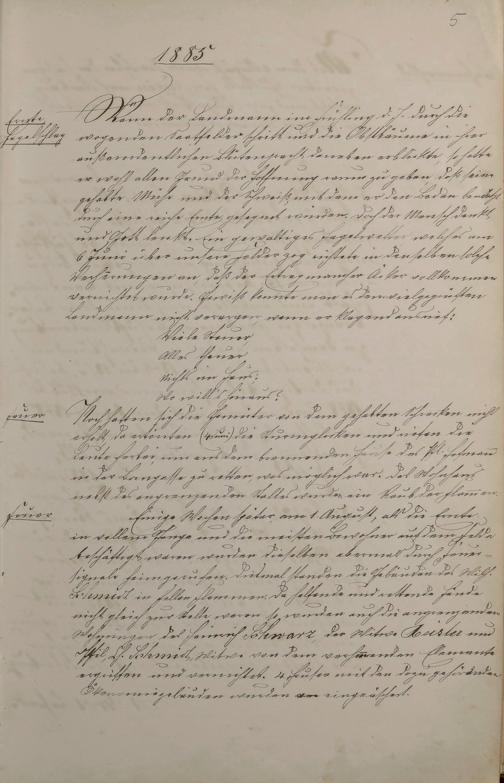 5
1885
Ernte,
Hagelschlag
Wenn der Landmann im Frühling d. J. durch die
wogenden Saatfelder schritt und die Obstbäume in ihrer
außerordentlichen Blütenpracht daneben erblickte, so hatte
er wohl allen Grund der Hoffnung Raum zu geben, daß seine
gehabte Mühe und der Schweiß mit dem er den Boden benetzt
durch eine reiche Ernte gesegnet würden. Doch der Mensch denkt
und Gott lenkt. Ein gewaltiges Hagelwetter welches am
6 Juni über unsere Felder zog richtete in denselben solche
Verheerungen an, daß der Ertrag mancher Äcker vollkommen
vernichtet wurde. Gewiß konnte man es dem vielgeprüften
Landmann nicht verargen, wenn er klagend ausrief:
Viele Steuer
Alles theuer
Nichts im Haus:
Wo will's hinaus?
Feuer
Noch hatten sich die Gemüter von dem gehabten Schrecken nicht
erholt, da ertönten (Juni) die Turmglocken und riefen die
Leute herbei, um aus dem brennenden Hause des Ph.
in der Langgasse zu retten was möglich war. Das Wohnhaus
nebst des angrenzenden Stalles wurden ein Raub der Flammen.
Feuer
Einige Wochen später am 1 August, als die Ernte
in vollem Gange und die meisten Bewohner auf dem Felde
beschäftigt waren wurden dieselben abermals durch Feuer-
signale heimgerufen. Diesmal standen die Gebäuden des Wilh.
Schmidt in hellen Flammen. Da helfende und rettende Hände
nicht gleich zur Stelle waren so wurden auch die angrenzenden
Wohnungen des Heinrich Schwarz der Witwe und
Schmidt, Witwe von dem verheerenden Elemente
ergriffen und vernichtet. 4 Häuser mit den dazu gehörenden
Ökonomiegebäuden wurden eingeäschert.